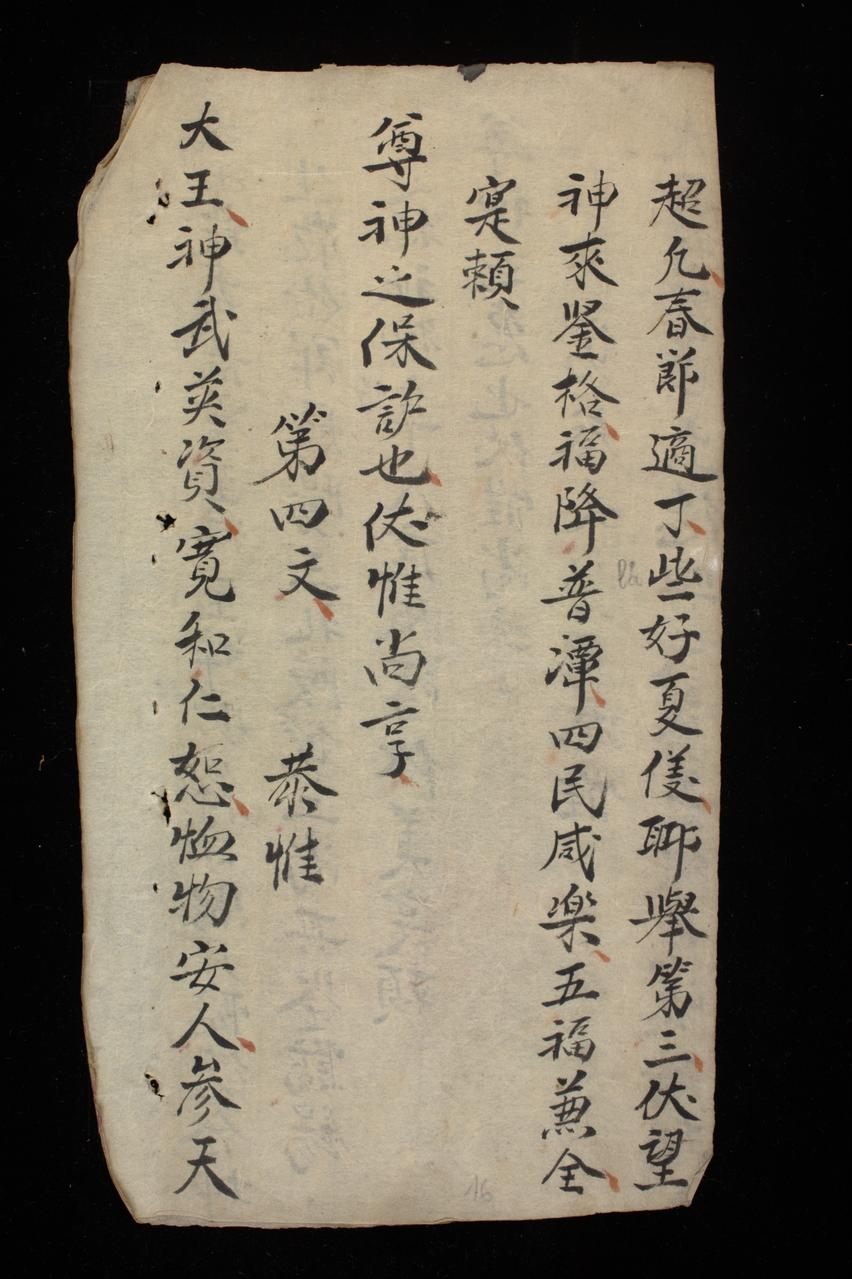 超允春郎適丁些好夏俴聊舉第三伏望
神來鍳格福降普潭四民咸楽五福兼全
寔頼
尊神之保訪也伏惟尚享
第四文 恭惟
大王神武英資寛和仁恕恤物安人參天
16